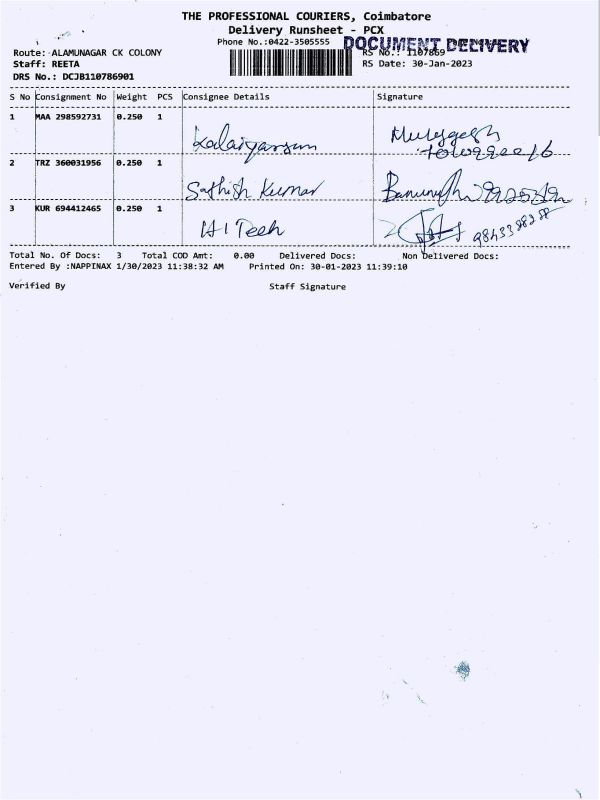 THE PROFESSIONAL COURIERS, Coimbatore
Delivery Runsheet - PCX
Phone No.:0422-3505555 DOCUMENT DELIVERY
Route: ALAMUNAGAR CK COLONY RS No.: 1107869
Staff: REETA RS Date: 30-Jan-2023
DRS No.: DCJB110786901
S No Consignment No Weight PCS Consignee Details Signature
1 MAA 298592731 0.250 1
Kalaiyarasan
2 TRZ 360031956 0.250 1
Sathish Kumar
3 KUR 694412465 0.250 1
HI Tech
Total No. Of Docs: 3 Total COD Amt: 0.00 Delivered Docs: Non Delivered Docs:
Entered By :NAPPINAX 1/30/2023 11:38:32 AM Printed On: 30-01-2023 11:39:10
Verified By Staff Signature